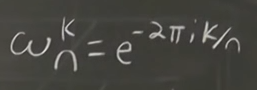 ωₙᵏ = e^{-2πik/n}